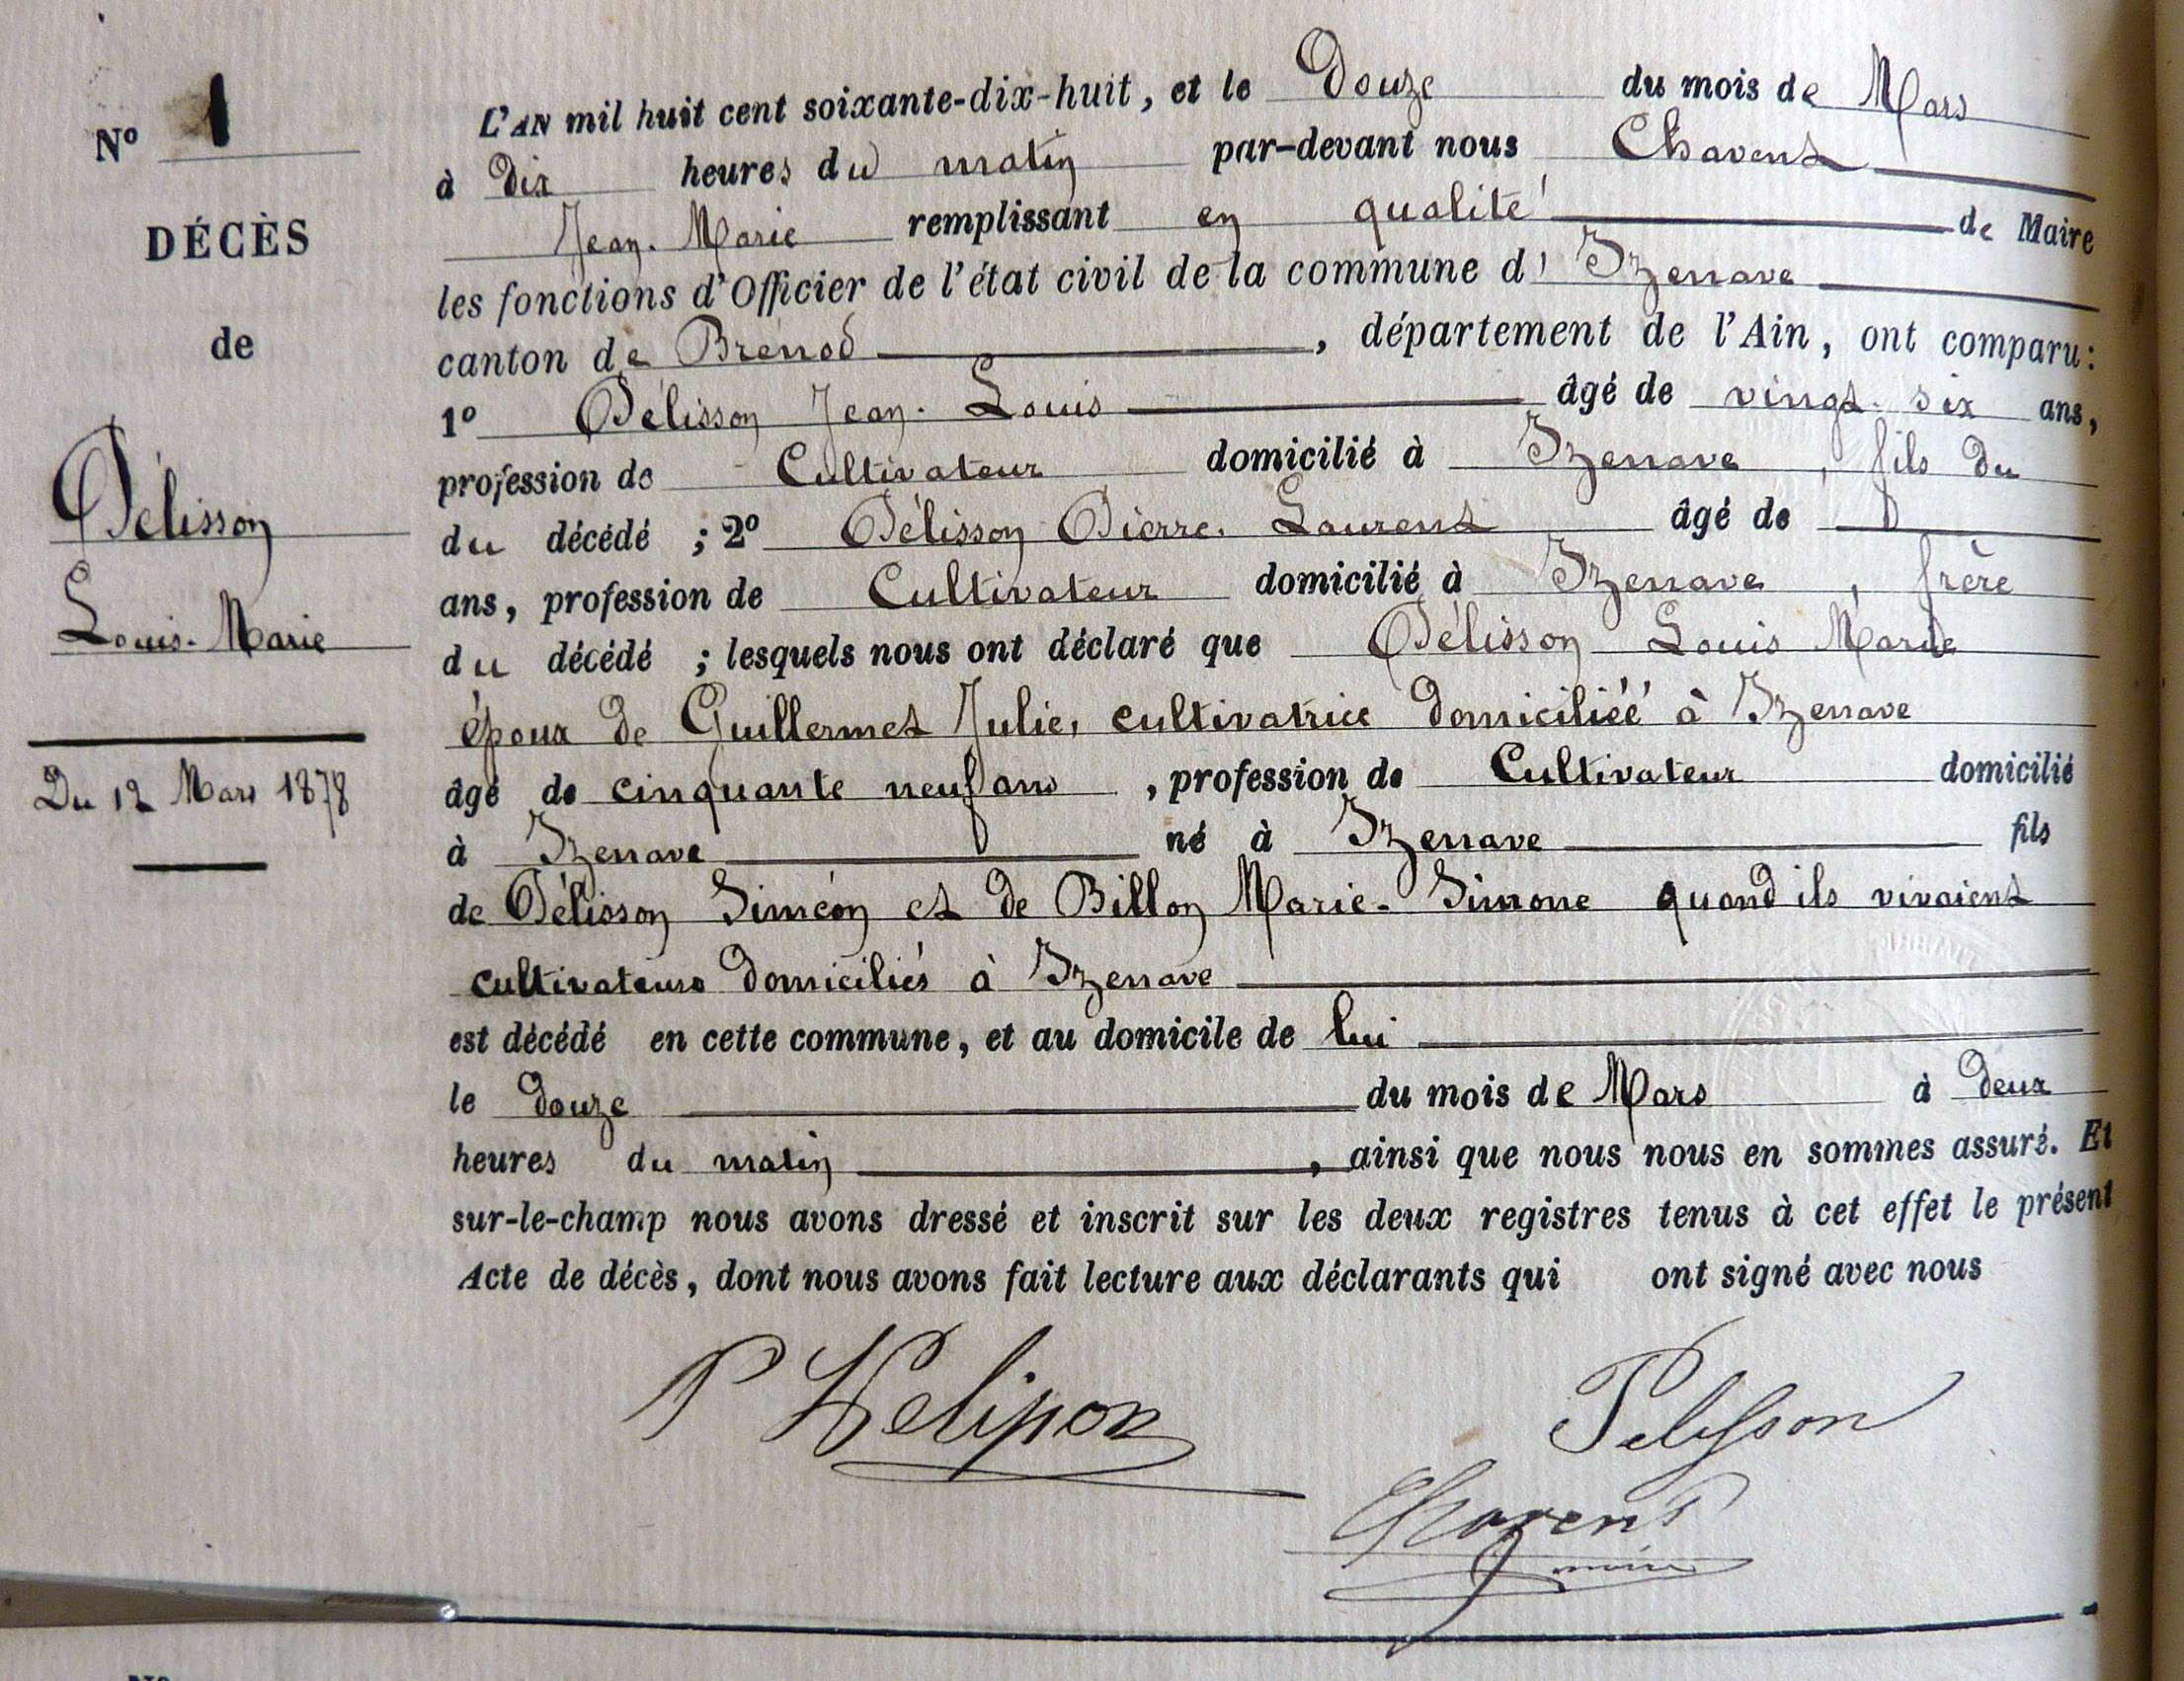 N° 1
DÉCÈS
de
Pélisson
Louis-Marie
Du 12 Mars 1878
L'AN mil huit cent soixante-dix-huit, et le Douze du mois de Mars
à Dix heures du matin par-devant nous Chavent
Jean-Marie remplissant en qualité de Maire
les fonctions d'Officier de l'état civil de la commune d' Izenave
canton de Brénod, département de l'Ain, ont comparu:
1° Pélisson Jean-Louis âgé de vingt-six ans,
profession de Cultivateur domicilié à Izenave, fils du
du décédé ; 2° Pélisson Pierre-Laurent âgé de
ans, profession de Cultivateur domicilié à Izenave, frère
du décédé ; lesquels nous ont déclaré que Pélisson Louis Marie
époux de Guillermet Julie, cultivatrice domiciliéé à Izenave
âgé de cinquante neuf ans, profession de Cultivateur domicilié
à Izenave né à Izenave fils
de Pélisson Siméon et de Billon Marie-Simone quand ils vivaient
cultivateurs domiciliés à Izenave
est décédé en cette commune, et au domicile de lui
le douze du mois de Mars à deux
heures du matin, ainsi que nous nous en sommes assuré. Et
sur-le-champ nous avons dressé et inscrit sur les deux registres tenus à cet effet le présent
Acte de décès, dont nous avons fait lecture aux déclarants qui ont signé avec nous
P Pelisson
Pelisson
Chavent
maire